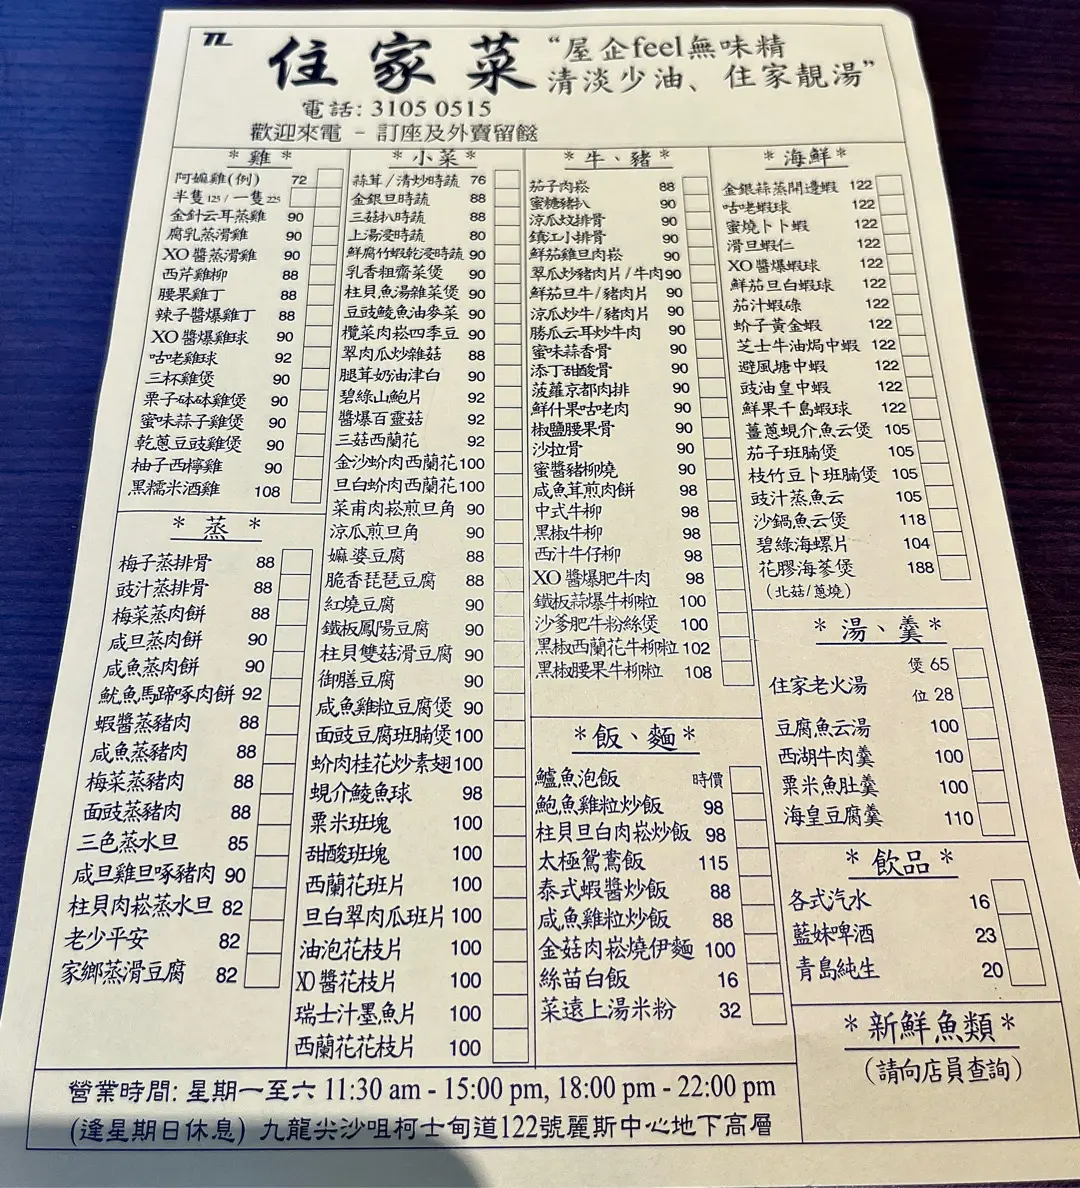 TL
住家菜
“屋企feel無味精
清淡少油、住家靚湯”
電話: 3105 0515
歡迎來電 - 訂座及外賣留餸
* 雞 *
阿嫲雞(例) 72
半隻125 / 一隻225
金針云耳蒸雞 90
腐乳蒸滑雞 90
XO醬蒸滑雞 90
西芹雞柳 88
腰果雞丁 88
辣子醬爆雞丁 88
XO醬爆雞球 90
咕咾雞球 92
三杯雞煲 90
栗子砵砵雞煲 90
蜜味蒜子雞煲 90
乾蔥豆豉雞煲 90
柚子西檸雞 90
黑糯米酒雞 108
* 蒸 *
梅子蒸排骨 88
豉汁蒸排骨 88
梅菜蒸肉餅 88
咸旦蒸肉餅 90
咸魚蒸肉餅 90
魷魚馬蹄啄肉餅 92
蝦醬蒸豬肉 88
咸魚蒸豬肉 88
梅菜蒸豬肉 88
面豉蒸豬肉 88
三色蒸水旦 85
咸旦雞旦啄豬肉 90
柱貝肉崧蒸水旦 82
老少平安 82
家鄉蒸滑豆腐 82
* 小菜 *
蒜茸/清炒時蔬 76
金銀旦時蔬 88
三菇扒時蔬 88
上湯浸時蔬 80
鮮腐竹蝦乾浸時蔬 90
乳香粗齋菜煲 90
柱貝魚湯雜菜煲 90
豆豉鯪魚油麥菜 90
欖菜肉崧四季豆 90
翠肉瓜炒雜菇 88
腿茸奶油津白 90
碧綠山鮑片 92
醬爆百靈菇 92
三菇西蘭花 92
金沙蚧肉西蘭花 100
旦白蚧肉西蘭花 100
菜甫肉崧煎旦角 90
涼瓜煎旦角 90
嫲婆豆腐 88
脆香琵琶豆腐 88
紅燒豆腐 90
鐵板鳳陽豆腐 90
柱貝雙菇滑豆腐 90
御膳豆腐 90
咸魚雞粒豆腐煲 90
面豉豆腐班腩煲 100
蚧肉桂花炒素翅 100
蜆介鯪魚球 98
粟米班塊 100
甜酸班塊 100
西蘭花班片 100
旦白翠肉瓜班片 100
油泡花枝片 100
XO醬花枝片 100
瑞士汁墨魚片 100
西蘭花花枝片 100
* 牛、豬 *
茄子肉崧 88
蜜糖豬扒 90
涼瓜炆排骨 90
鎮江小排骨 90
鮮茄雞旦肉崧 90
翠瓜炒豬肉片/牛肉 90
鮮茄旦牛/豬肉片 90
涼瓜炒牛/豬肉片 90
勝瓜云耳炒牛肉 90
蜜味蒜香骨 90
添丁甜酸骨 90
菠蘿京都肉排 90
鮮什果咕老肉 90
椒鹽腰果骨 90
沙拉骨 90
蜜醬豬柳燒 90
咸魚茸煎肉餅 98
中式牛柳 98
黑椒牛柳 98
西汁牛仔柳 98
XO醬爆肥牛肉 98
鐵板蒜爆牛柳粒 100
沙爹肥牛粉絲煲 100
黑椒西蘭花牛柳粒 102
黑椒腰果牛柳粒 108
*飯、麵*
鱸魚泡飯 時價
鮑魚雞粒炒飯 98
柱貝旦白肉崧炒飯 98
太極鴛鴦飯 115
泰式蝦醬炒飯 88
咸魚雞粒炒飯 88
金菇肉崧燒伊麵 100
絲苗白飯 16
菜遠上湯米粉 32
* 海鮮*
金銀蒜蒸開邊蝦 122
咕咾蝦球 122
蜜燒卜卜蝦 122
滑旦蝦仁 122
XO醬爆蝦球 122
鮮茄旦白蝦球 122
茄汁蝦碌 122
蚧子黃金蝦 122
芝士牛油焗中蝦 122
避風塘中蝦 122
豉油皇中蝦 122
鮮果千島蝦球 122
薑蔥蜆介魚云煲 105
茄子班腩煲 105
枝竹豆卜班腩煲 105
豉汁蒸魚云 105
沙鍋魚云煲 118
碧綠海螺片 104
花膠海參煲 188
(北菇/蔥燒)
* 湯、羹*
煲 65
住家老火湯
位 28
豆腐魚云湯 100
西湖牛肉羹 100
粟米魚肚羹 100
海皇豆腐羹 110
* 飲品 *
各式汽水 16
藍妹啤酒 23
青島純生 20
*新鮮魚類*
(請向店員查詢)
營業時間: 星期一至六 11:30 am - 15:00 pm, 18:00 pm - 22:00 pm
(逢星期日休息) 九龍尖沙咀柯士甸道122號麗斯中心地下高層